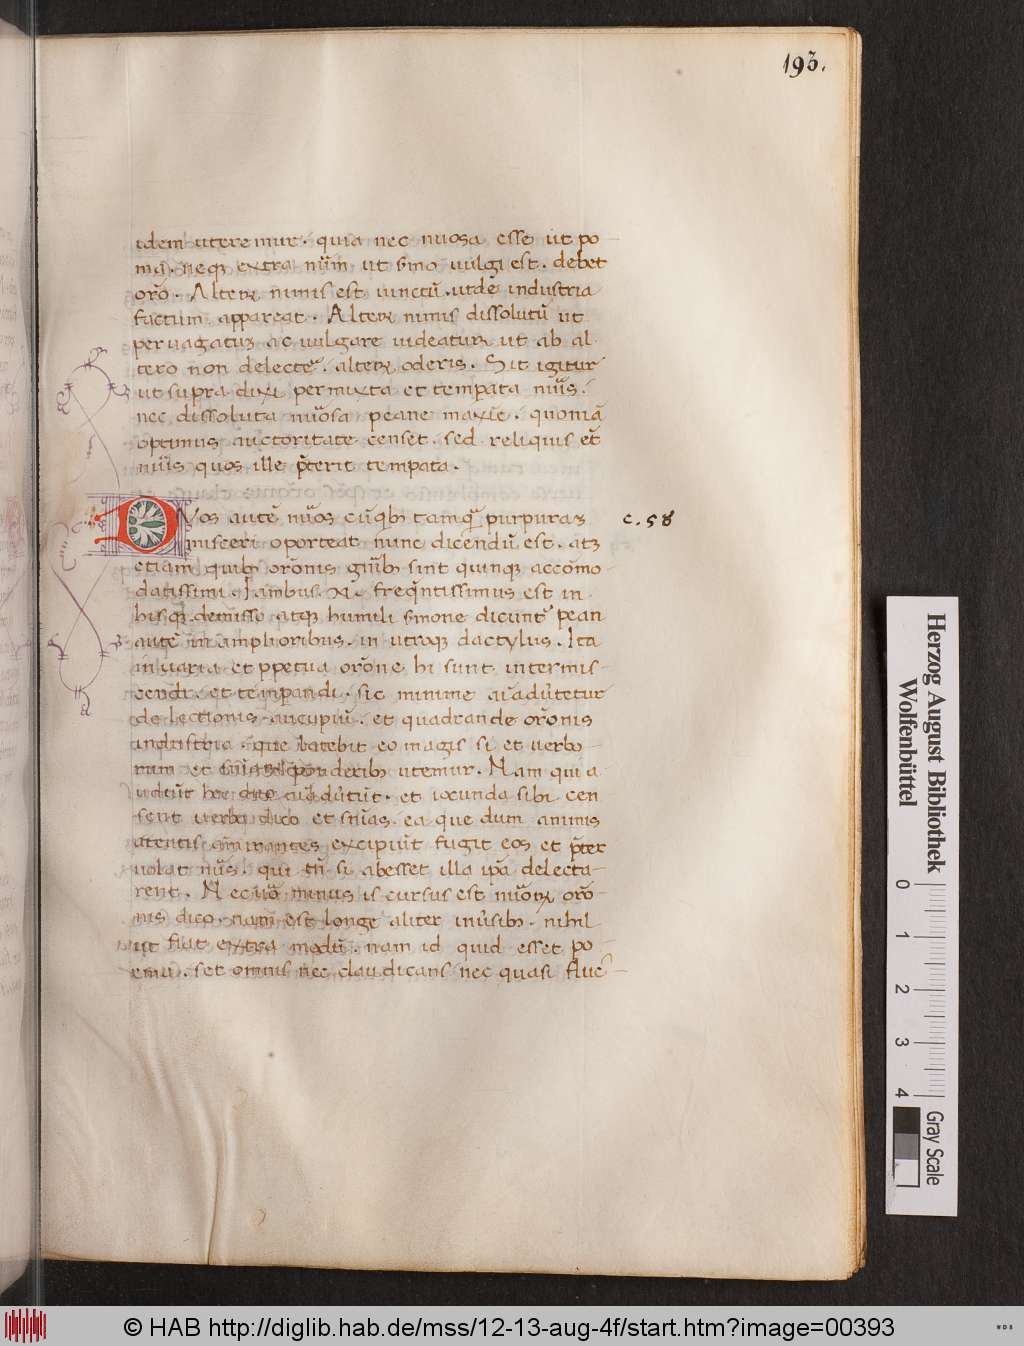 193.
idem uteremur. quia nec nu᷑osa esse ut po
ma. neqꝫ extra nūm ut s̄mo uulgi est. debet
orō. Alterꝝ nimis est iunctū. ut de industria
factum appareat. Alterꝝ nimis dissolutū ut
peruagatuꝫ ac uulgare uideatur ut ab al
tero non delectēr. alterꝝ oderis. Sit igitur
ut supra dixi permixta et temperata nūis.
nec dissoluta nūosa peane maxīe. quoniā
optimus auctoritate censet. sed reliquis et̄
nūis quos ille p̄terit temperata.
Nos autē nūos cū qibꝫ tamqꝫ purpuraꝫ
misceri oporteat nunc dicendū est. atqꝫ
etiam quibꝫ orōnis gn̄ibꝫ sint quinqꝫ accōmo
datissimi. Iambus. n. freqn̄tissimus est in
his qꝫ demisso atqꝫ humili s̄mone dicunt᷑ pean
autē in amplioribus. in utroqꝫ dactylus. Ita
in uaria et ꝑpetua orōne hi sunt intermis
cendi. et temperandi. sic minime
delectionis aucupiū. et quadrande orōnis
industria. que latebit eo magis si et uerbo
rum et ponderibꝫ utemur. Nam qui a
udiūt hec duo et iocunda sibi cen
sent uerba dico et sn̄ias. ea que dum animis
atentis amirantes excipiūt fugit eos et p̄ter
uolat nūs. qui tn̄ si abesset illa ip̄a delecta
rent. Nec uō minus is cursus est nūorꝝ orō
nis dico. nam est longe aliter in ūsibꝫ. nihil
ut fiat extra modū. nam id quid esset po
ema. set omnis nec claudicans nec quasi fluc
c. 58
Herzog August Bibliothek
Wolfenbüttel
0 1 2 3 4
Gray Scale
© HAB http://diglib.hab.de/mss/12-13-aug-4f/start.htm?image=00393